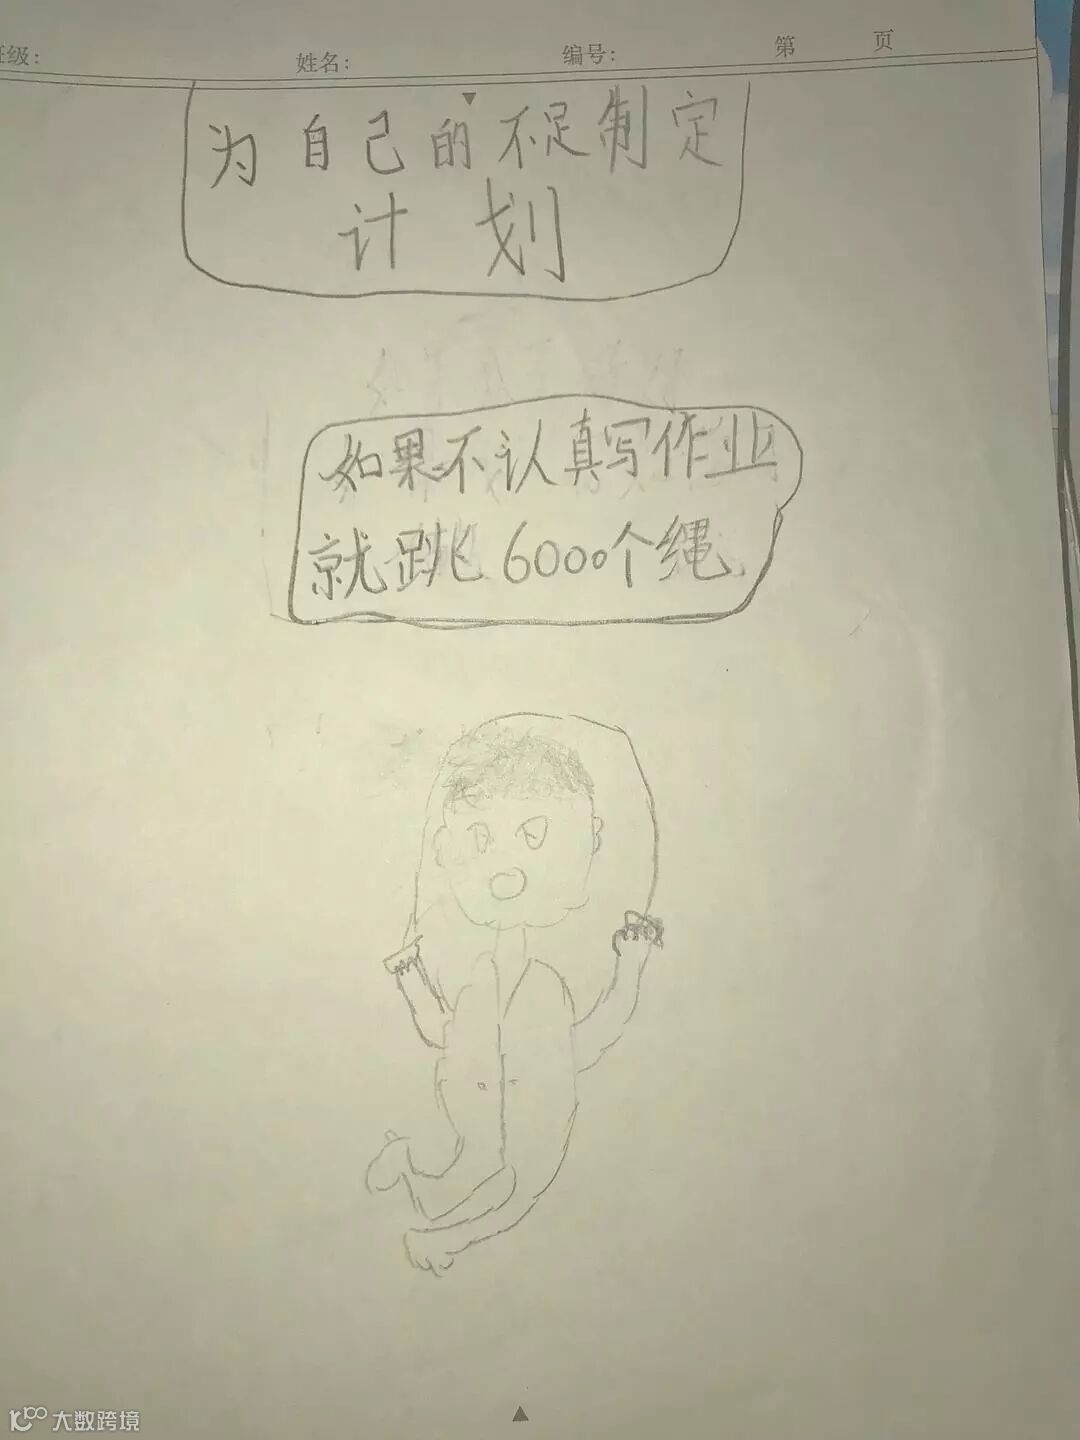 班级： 姓名： 编号： 第 页
为自己的不足制定
计划
如果不认真写作业
就跳6000个绳
大数跨境